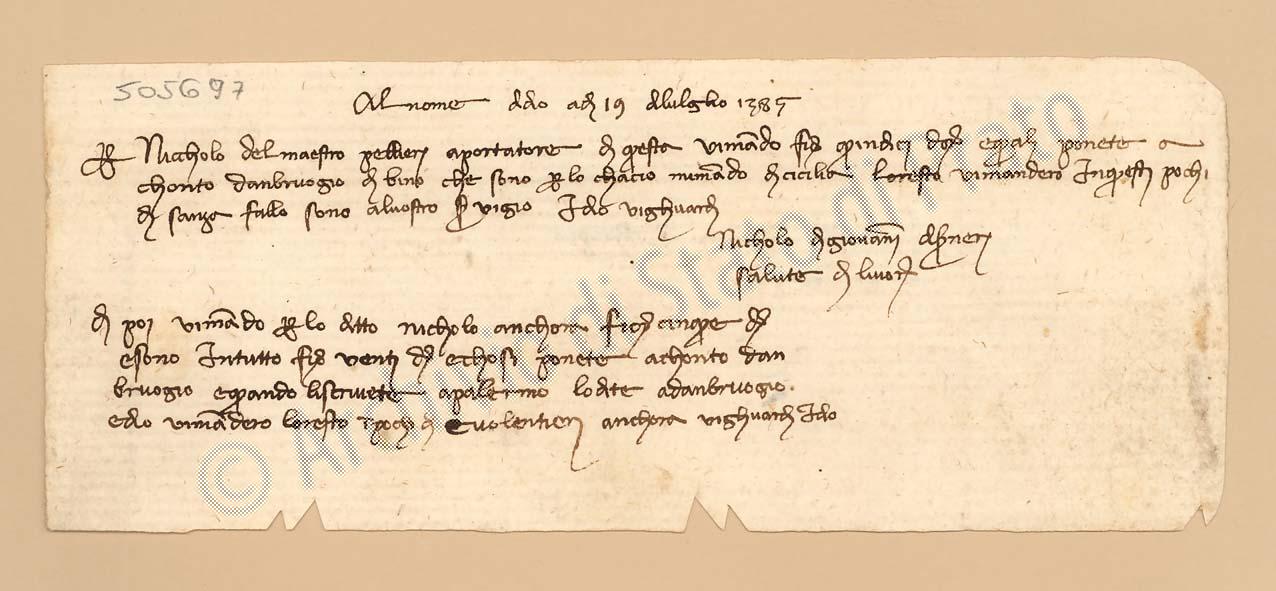 505697
Al nome ddio adi 19 dluglio 1385
Nicchholo del maestro aportatore di questa vimando fior quindici doro e quali ponete a
chonto danbruogio di bino che sono per lo chacio mimando di cicilia loresto vimandero inquesti pochi
di sanza fallo sono alvostro servigio Idio vighuardi
Nicholo digiovanni
salute di
di poi vimando per lo detto nicholo anchora fior cinque
e sono Intutto fior venti e chosi ponete achonto dan
bruogio e quando liscrivete apalermo lodite adanbruogio
edio vimandero loresto i pochi di e volentieri anchora vighuardi Idio
© Archivio di Stato di Prato